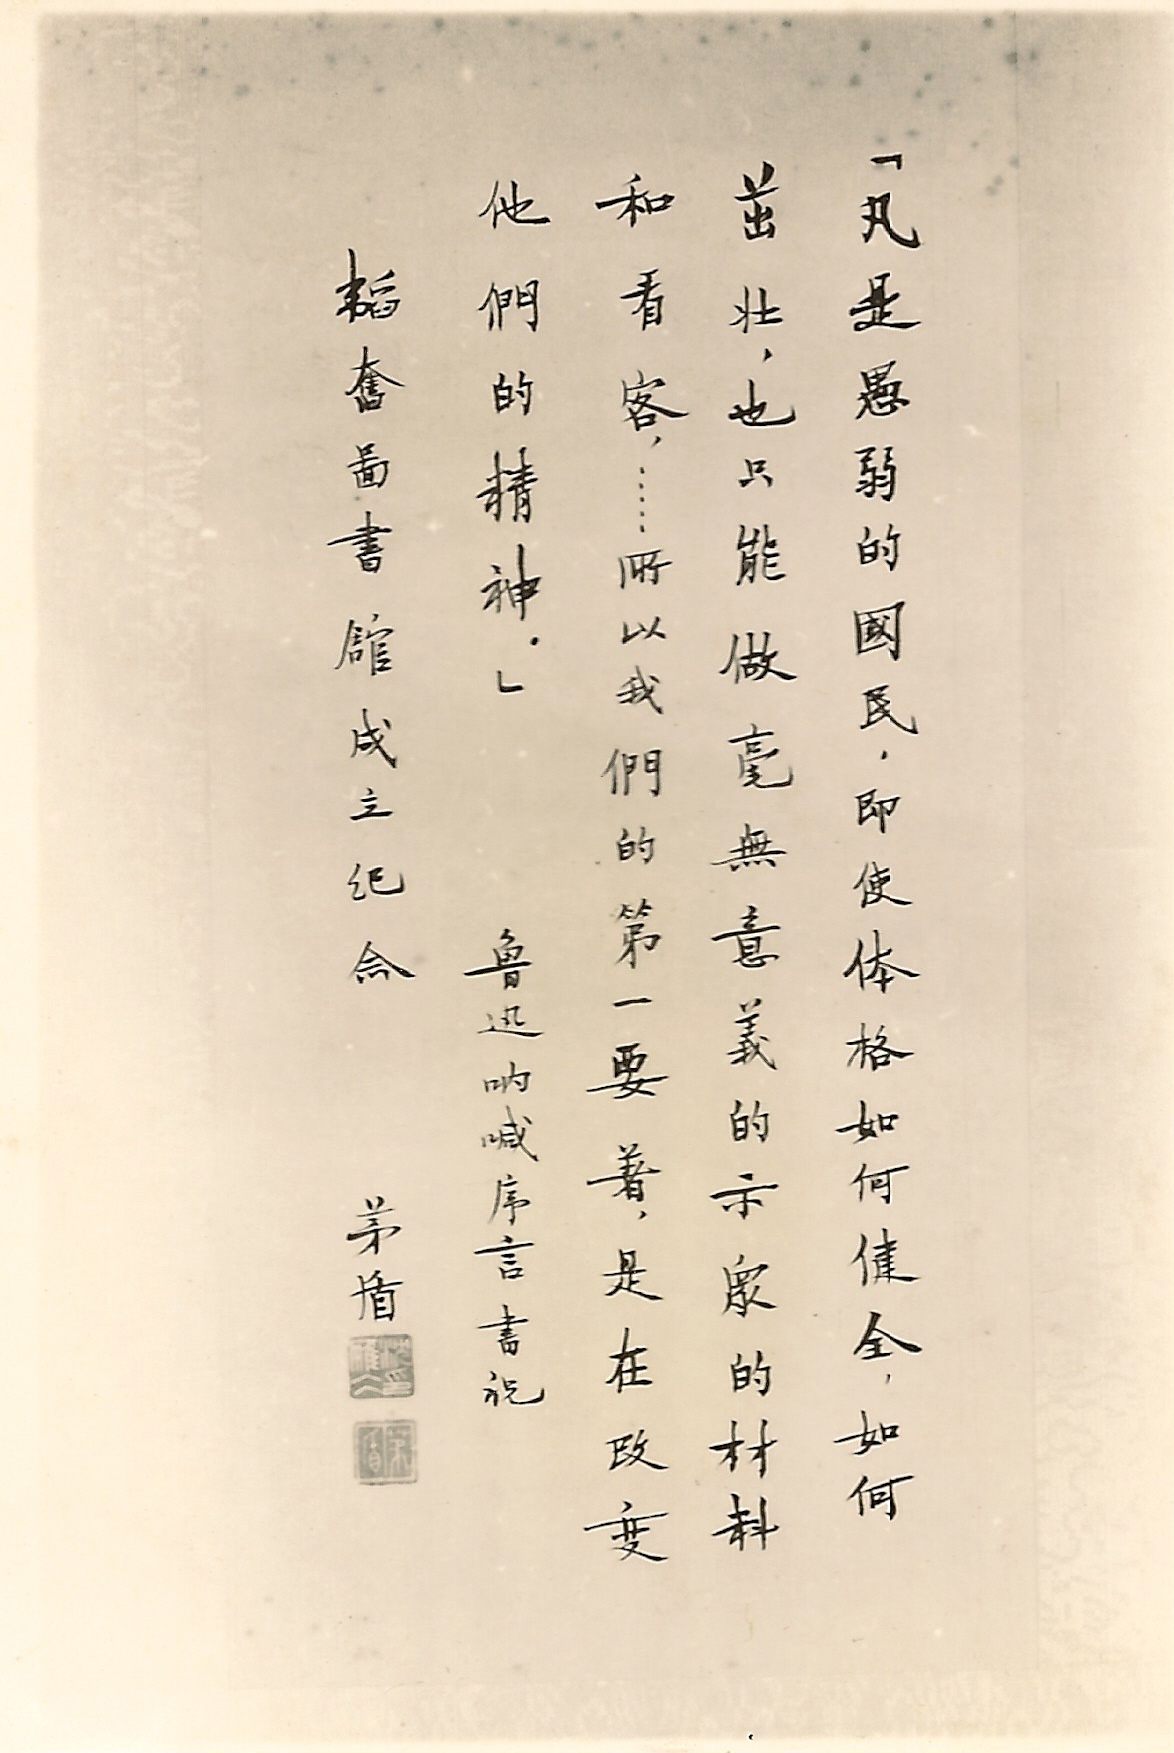 「凡是愚弱的國民，即使体格如何健全，如何
茁壯，也只能做毫無意義的示眾的材料
和看客，……所以我們的第一要著，是在改变
他們的精神。」　魯迅吶喊序言書祝
韜奮圖書館成立纪念　茅盾